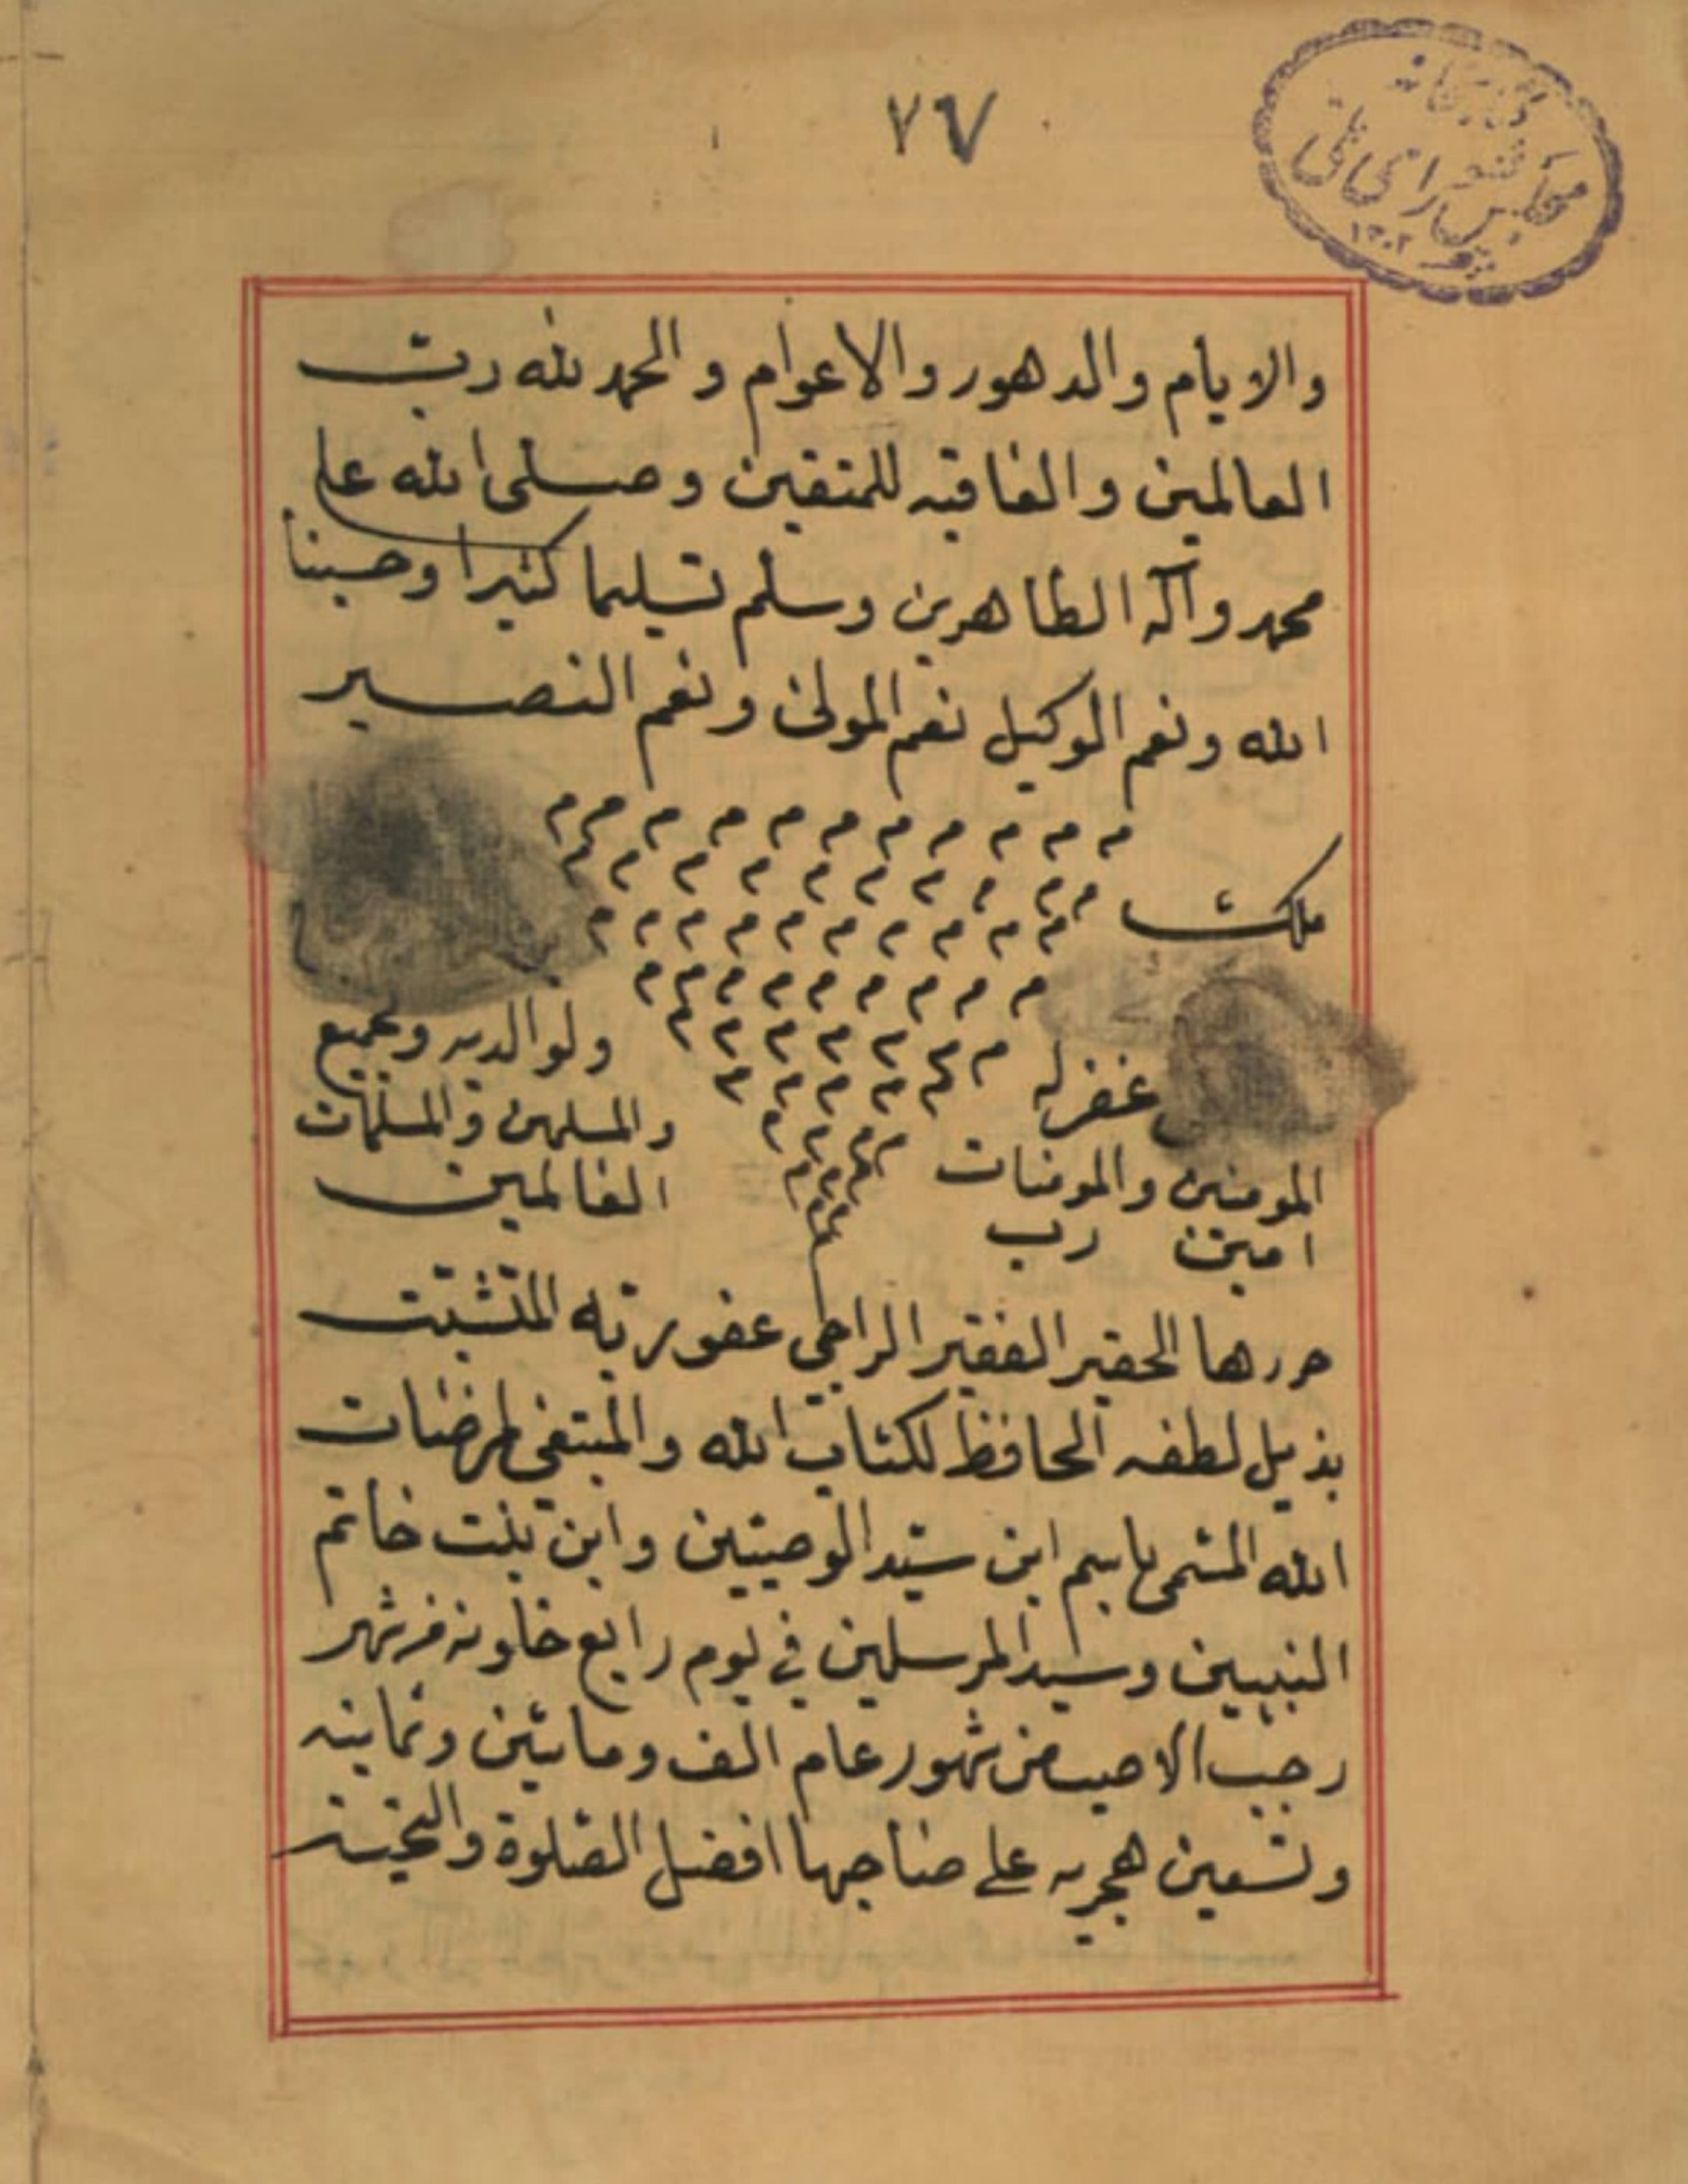 ٧٦٧
كتابخانه
مجلس شورای ملی
١٣٠٢
والايام والدهور والاعوام والحمد لله ربّ
العالمين والعاقبه للمتقين وصلى الله على
محمد وآله الطاهرين وسلم تسليما كثيرا وحسبنا
الله ونعم الوكيل نعم المولى ونعم النصير
ملكت
غفر له ولوالديه ولجميع
المومنين والمومنات والمسلمين والمسلمات
امين رب العالمين
حررها الحقير الفقير الراجى عفو ربّه المتشبّث
بذيل لطفه الحافظ لكتاب الله والمبتغى لمرضات
الله المسّمى باسم ابن سيّد الوصيّين وابن بنت خاتم
النبيين وسيد المرسلين فى يوم رابع خلونه من شهر
رجب الاصب من شهور عام الف ومائتين وثمانيه
وتسعين هجريه على صاحبها افضل الصّلوة والتحيّه